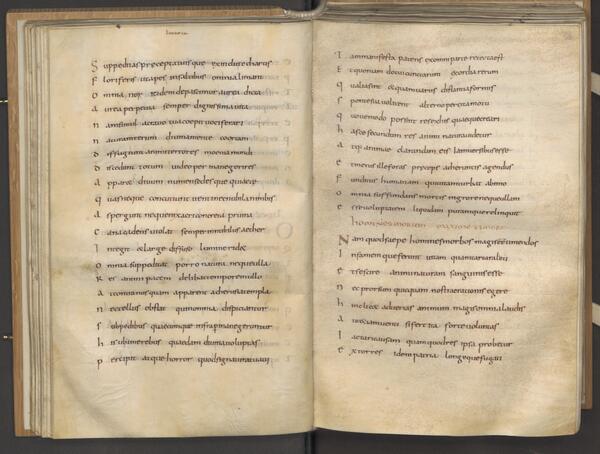 Suppeditas precepta tuis que ex inclute chartis
Floriferis ut apes in saltibus omnia limant
Omnia nos itidem depascimur aurea dicta
Aurea perpetua semper dignissima uita
Nam simul ac ratio tua coepit uociferari
Naturam rerum diuina mente coortam
Diffugiunt animi terrores moenia mundi
Discedunt totum uideo per inane geri res
Apparet diuum numen sedes que quietae
Quas neque concutiunt uenti nec nubila nimbis
Aspergunt neque nix acri concreta pruina
Cana cadens uiolat semper innubilus aether
Integit et large diffuso lumine ridet
Omnia suppeditat porro natura neque ulla
Res animi pacem delibat tempore in ullo
At contra nusquam apparent acherusia templa
Nec tellus obstat quin omnia dispiciantur
Sub pedibus quaecumque infra per inane geruntur
His ubi me rebus quaedam diuina uoluptas
Percipit atque horror quod sic natura tua ui
Tam manifesta patens ex omni parte retecta est
Et quoniam docui cunctarum exordia rerum
Qualia sint et quam uariis distantia formis
Sponte sua uolitent alterno percita motu
Quoue modo possint res ex his quaeque creari
Hasce secundum res animi natura uidetur
Atque animae claranda meis iam uersibus esse
Et metus ille foras praeceps acheruntis agendus
Funditus humanam qui uitam turbat ab imo
Omnia suffundens mortis nigrore neque ullam
Esse uoluptatem liquidam puramque relinquit
Nam quod saepe homines morbos magis esse timendos
Infamem que ferunt uitam quam tartara leti
Et se scire animi naturam sanguinis esse
Nec prorsum quicquam nostrae rationis egere
Hinc licet aduertas animum magis omnia laudis
Aut etiam uenti si fert ita forte uoluntas
Iactari causam quam quod res ipsa probetur
Extorres idem patria longe que fugati